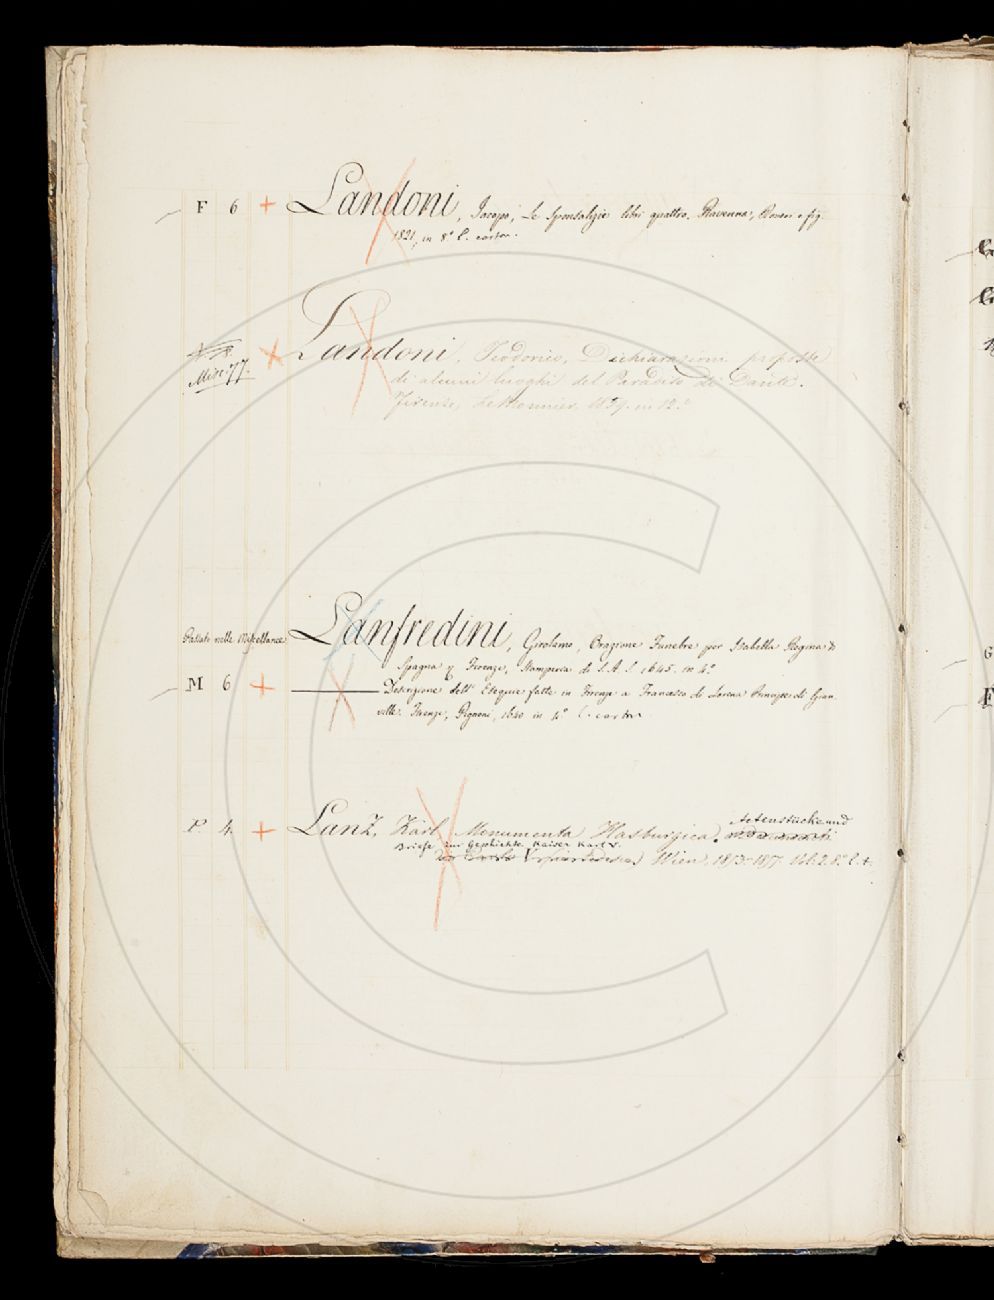 F 6 + Landoni, Jacopo, Le Sponsalizie libri quattro. Ravenna, Roveri e fig.
1821, in 8° l. carton.
Misc. 77. X Landoni, Teodorico, Dichiarazioni proposte
di alcuni luoghi del Paradiso di Dante.
Firenze, Le Monnier, 1859. in 12.°
Passato nelle Miscellanee Lanfredini, Girolamo, Orazione Funebre per Isabella Regina di
Spagna Firenze, Stamperia di S.A.S. 1645. in 4.°
M 6 + Descrizione dell' Esequie fatte in Firenze a Francesco di Lorena Principe di Gian
ville. Firenze, Pignoni, 1640 in 4.° l. carton.
Actenstücke und
P. 4. + Lanz, Karl Monumenta Hasburgica.
Briefe zur Geschichte Kaiser Karl V.
Wien, 1853-1857. Vol. 2. 8.° l. t.